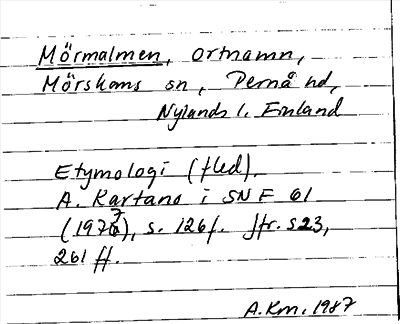 Mörmalmen, ortnamn,
Mörskoms sn, Pernå hd,
Nylands l. Finland
Etymologi (fled).
A. Kartano i SNF 61
(1977), s. 126f. Jfr. s 23,
261 ff.
A.Km. 1987